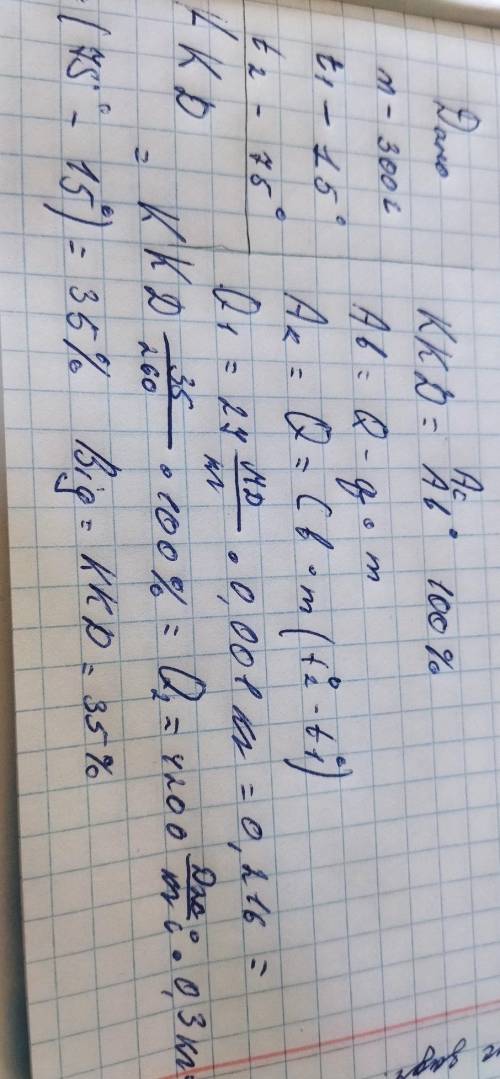 Дано
m - 300 г
t1 - 15°
t2 - 75°
ККД
ККД = Ac / Aв · 100%
Aв = Q - q · m
Aк = Q = Cв · m (t2° - t1°)
Q1 = 27 МД/кг · 0,008 кг = 0,216 =
= ККД 35/260 · 100% = Q2 = 4200 Дж/m c · 0,3 кг ·
· (75° - 15°) = 35% Від = ККД = 35%